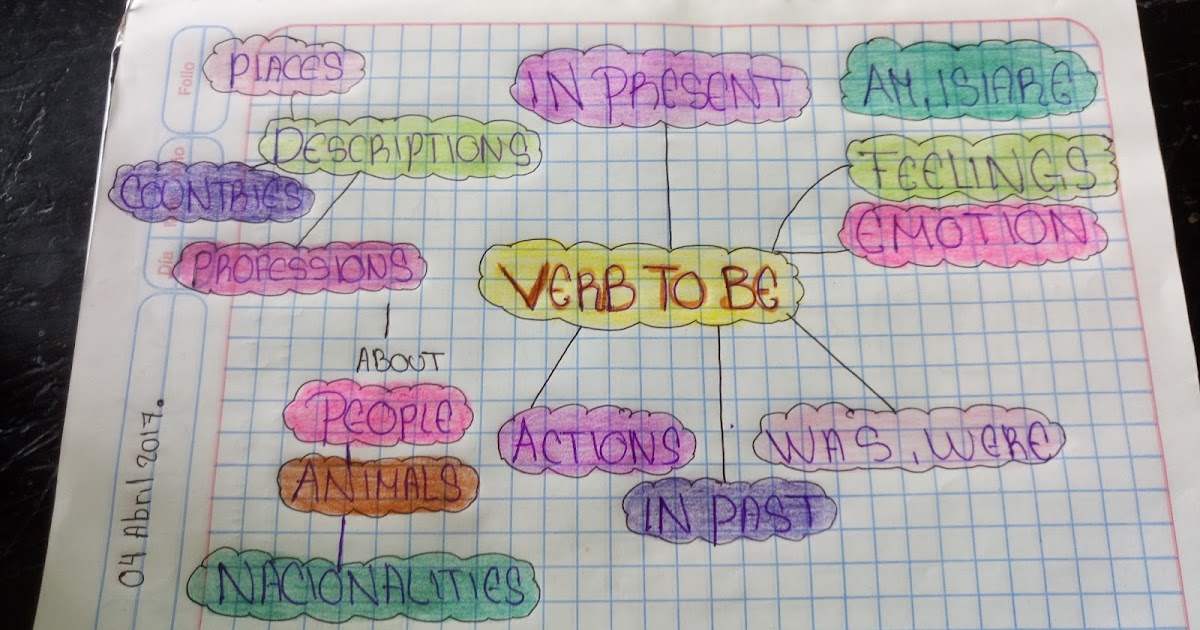 Folio
PlACES
IN PRESENT
AM, IS/ARE
DESCRIPTIONS
FEELINGS
COUNTRIES
EMOTION
Día
PROFESSIONS
VERB TO BE
ABOUT
PEOPLE
ACTIONS
WAS, WERE
ANIMALS
IN PAST
NACIONALITIES
04 Abril 2017.